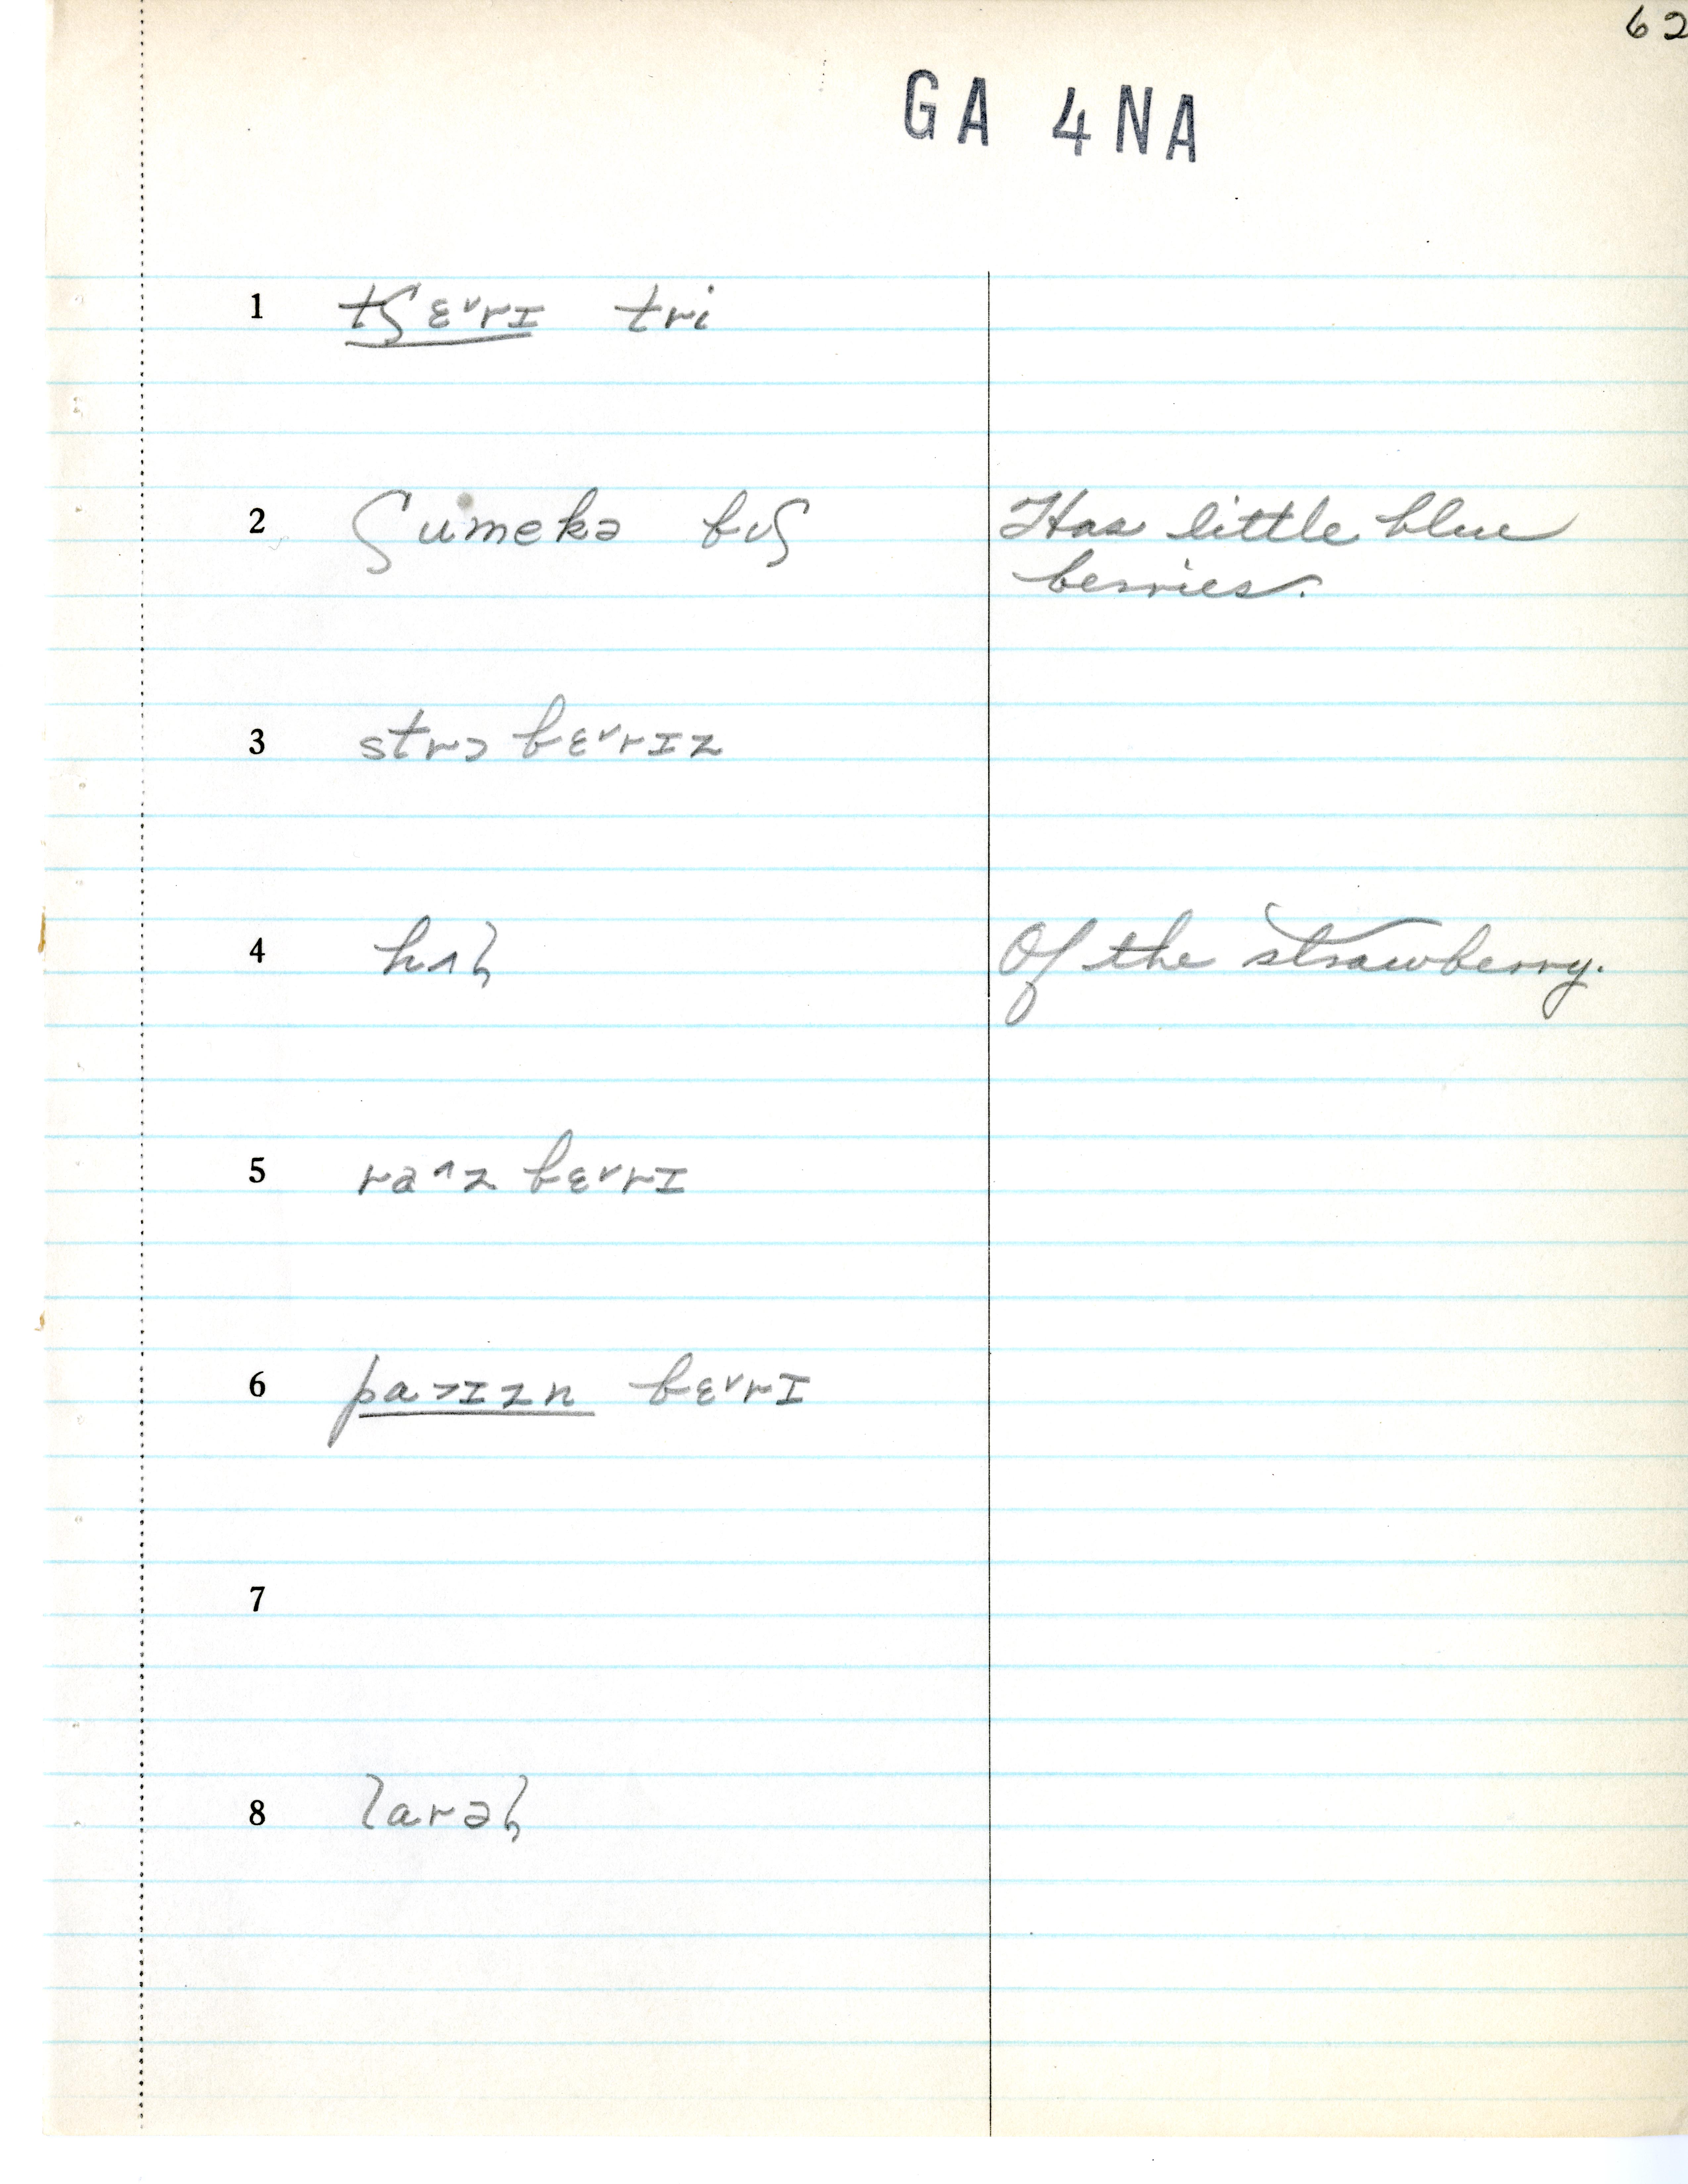 62
GA 4NA
1 tʃɛᵛrɪ tri
2 ʃumekə bʊʃ Has little blue
berries.
3 strɔ bɛᵛrɪz
4 hʌɫ Of the strawberry.
5 ra^z bɛᵛrɪ
6 pa>ɪzn bɛᵛrɪ
7
8 larəɫ